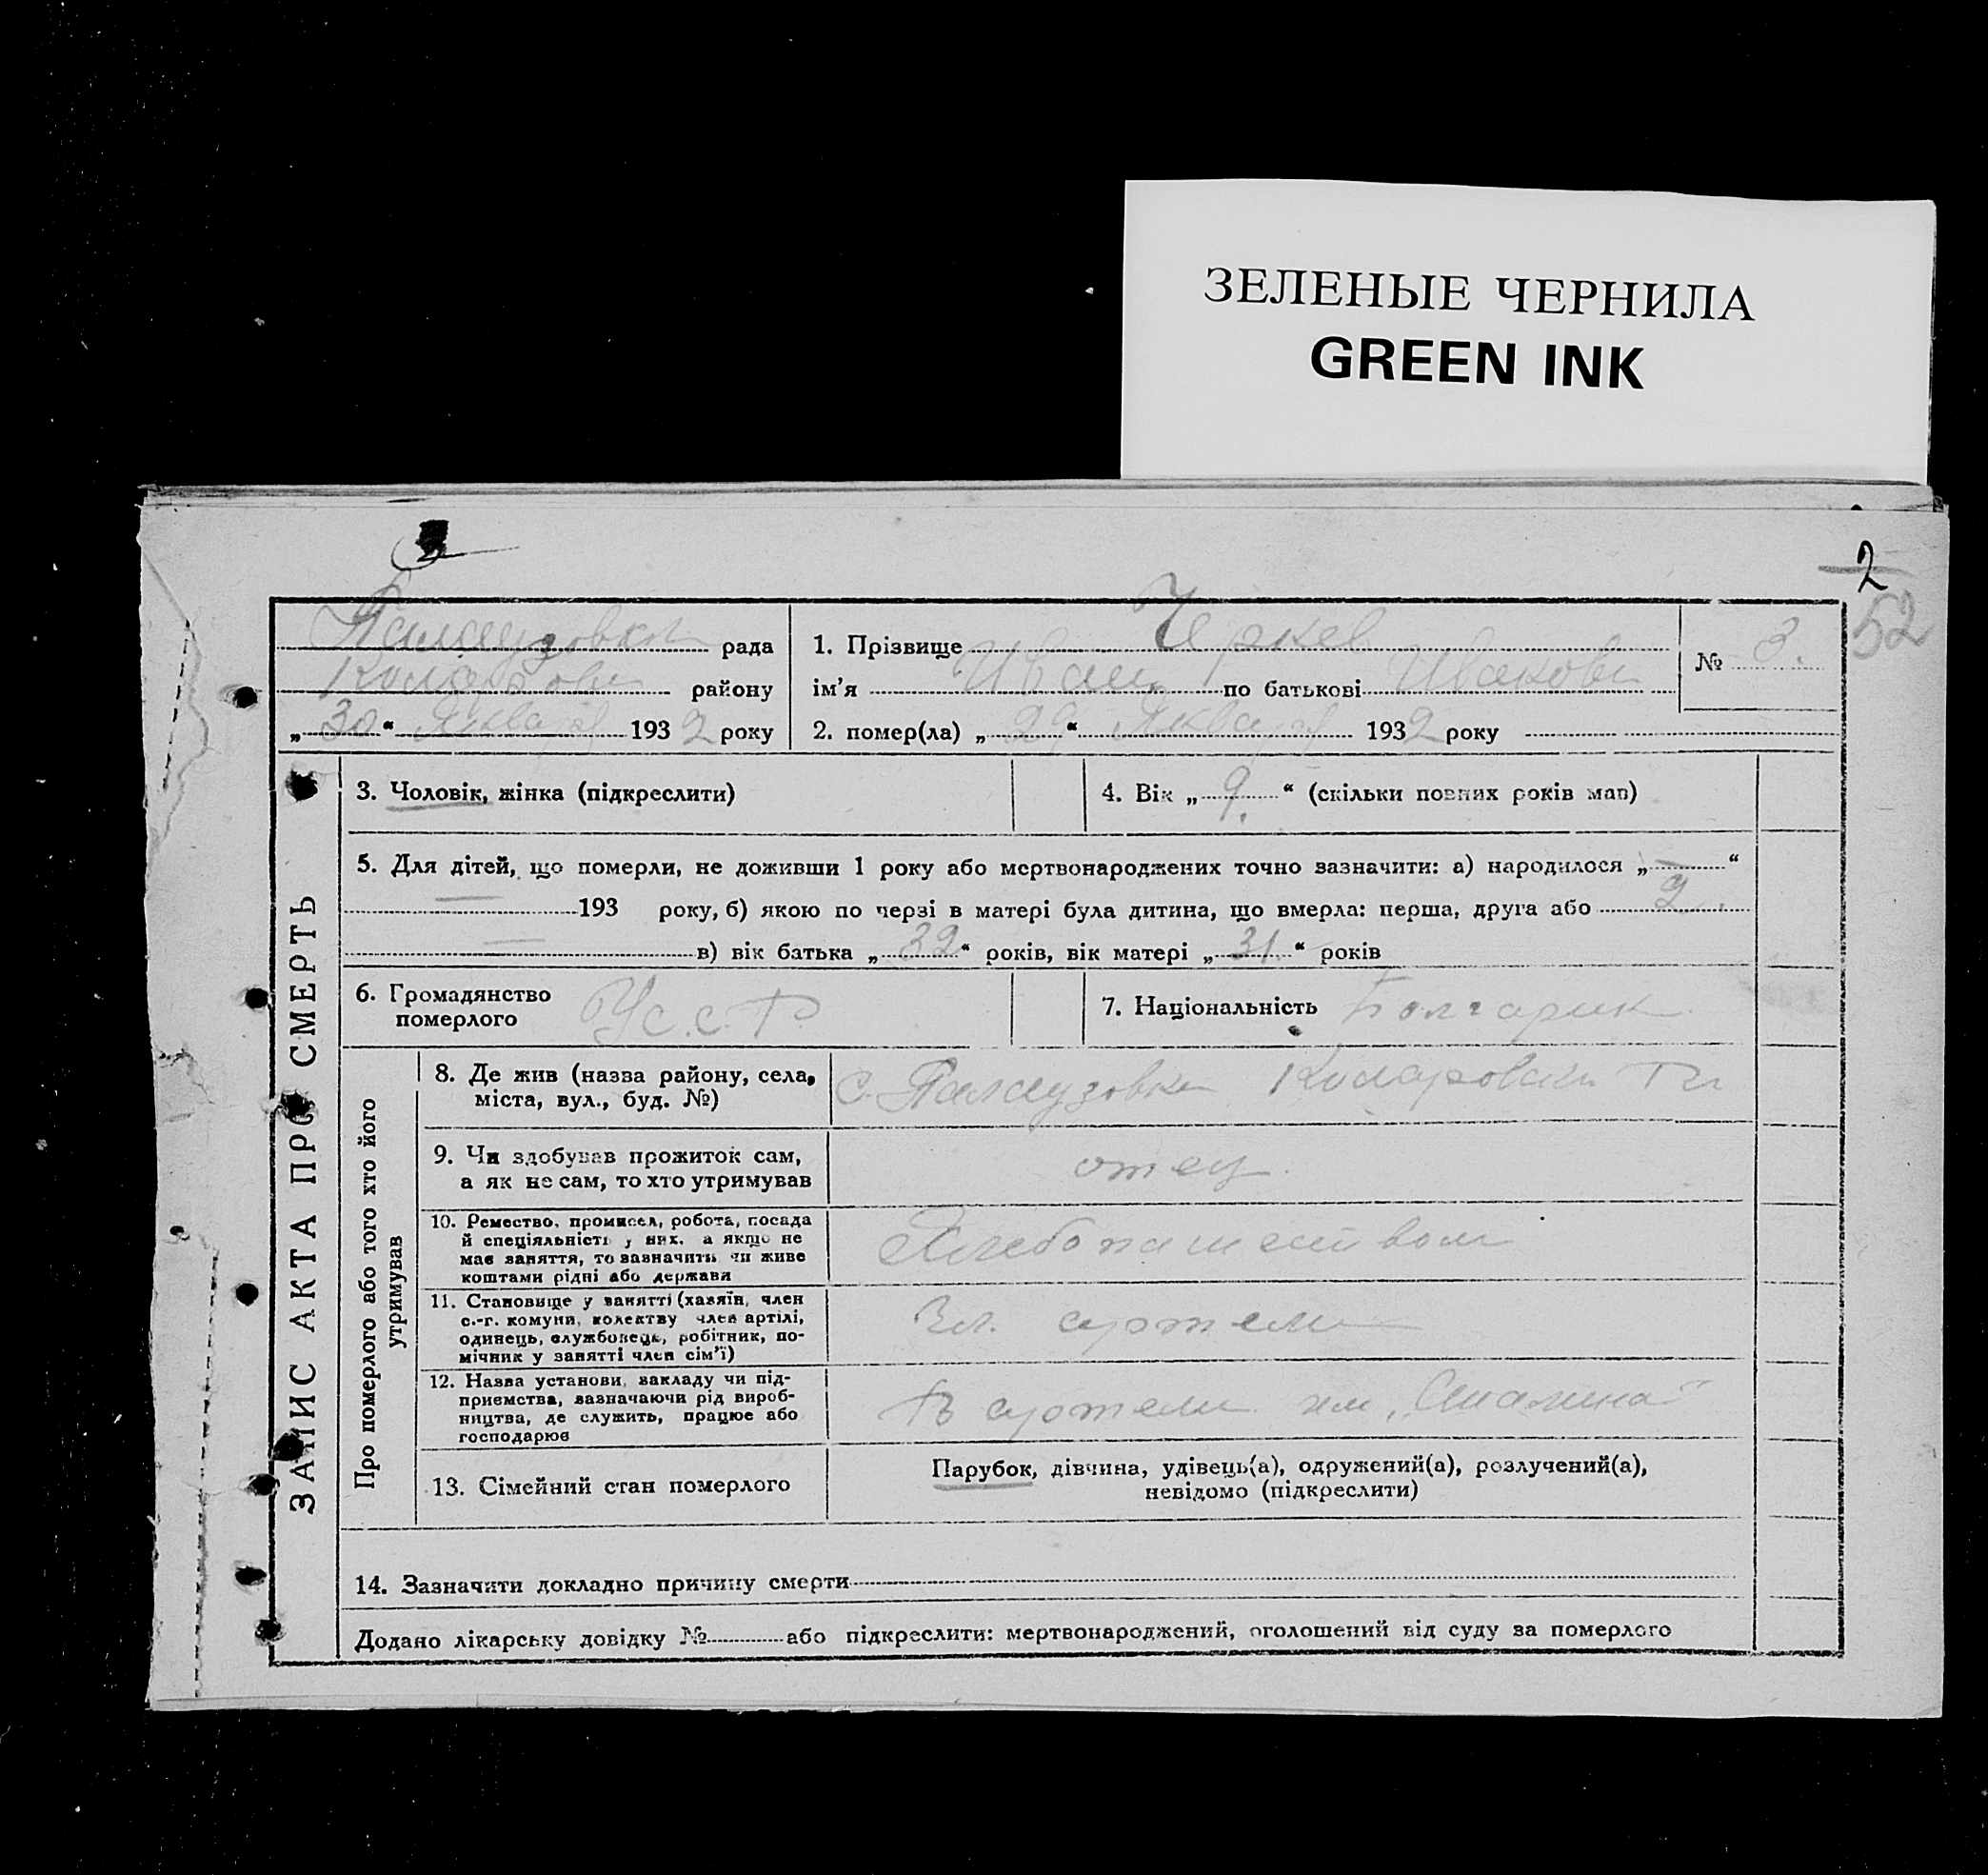 ЗЕЛЕНЫЕ ЧЕРНИЛА
GREEN INK
2
52
Палаузовка рада
района району
„30“ Января 1932 року
1. Прізвище Чркев
ім’я Иван по батькові Иванови
2. помер(ла) „29“ Января 1932 року
№ 3.
ЗАПИС АКТА ПРО СМЕРТЬ
3. Чоловік, жінка (підкреслити)
4. Вік „9.“ (скільки повних років мав)
5. Для дітей, що померли, не доживши 1 року або мертвонароджених точно зазначити: а) народилося „—“
— 193 року, б) якою по черзі в матері була дитина, що вмерла: перша, друга або 2.
— в) вік батька „32“ років, вік матері „31“ років
6. Громадянство
померлого
УС.С.Р.
7. Національність Болгарин
Про померлого або того хто його
утримував
8. Де жив (назва району, села,
міста, вул., буд. №)
с. Палаузовка Коларовски
9. Чи здобував прожиток сам,
а як не сам, то хто утримував
отец.
10. Ремество, промисел, робота, посада
й спеціяльність у них. а якщо не
має заняття, то зазначить чи живе
коштами рідні або держави
Хлебопашеством
11. Становище у занятті (хазяїн, член
с.-г. комуни, колектву член артілі,
одинець, службовець, робітник, по-
мічник у занятті член сім’ї)
артели
12. Назва установи, закладу чи під-
приемства, зазначаючи рід вироб-
ництва, де служить, працює або
господарює
В артели им „Сталина“
13. Сімейний стан померлого
Парубок, дівчина, удівець(а), одружений(а), розлучений(а),
невідомо (підкреслити)
14. Зазначити докладно причину смерти
Додано лікарську довідку № або підкреслити: мертвонароджений, оголошений від суду за померлого